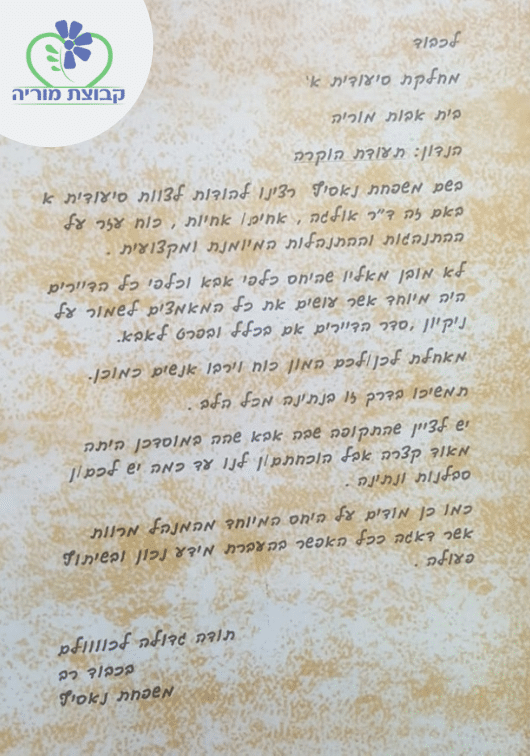 קבוצת מוריה
לכבוד
מחלקת סיעודית א'
בית אבות מוריה
הנדון: תעודת הוקרה
בשם משפחת נאסיף רצינו להודות לצוות סיעודית א
באם זה ד״ר אולגה , אחים/ אחיות , כוח עזר על
ההתנהגות וההתנהלות המיומנת ומקצועית .
לא מובן מאליו שהיחס כלפי אבא וכלפי כל הדיירים
היה מיוחד אשר עושים את כל המאמצים לשמור על
ניקיון ,סדר הדיירים אם בכלל ובפרט לאבא.
מאחלת לכן/לכם המון כוח וירבו אנשים כמוכן.
תמשיכו בדרך זו בנתינה מכל הלב .
יש לציין שהתקופה שבה אבא שהה במוסדכן היתה
מאוד קצרה אבל הוכחתם/ן לנו עד כמה יש לכם/ן
סבלנות ונתינה .
כמו כן מודים על היחס המיוחד מהמנהל מרוות
אשר דאגה ככל האפשר בהעברת מידע נכון ובשיתוף
פעולה .
תודה גדולה לכווווולם
בכבוד רב
משפחת נאסיף